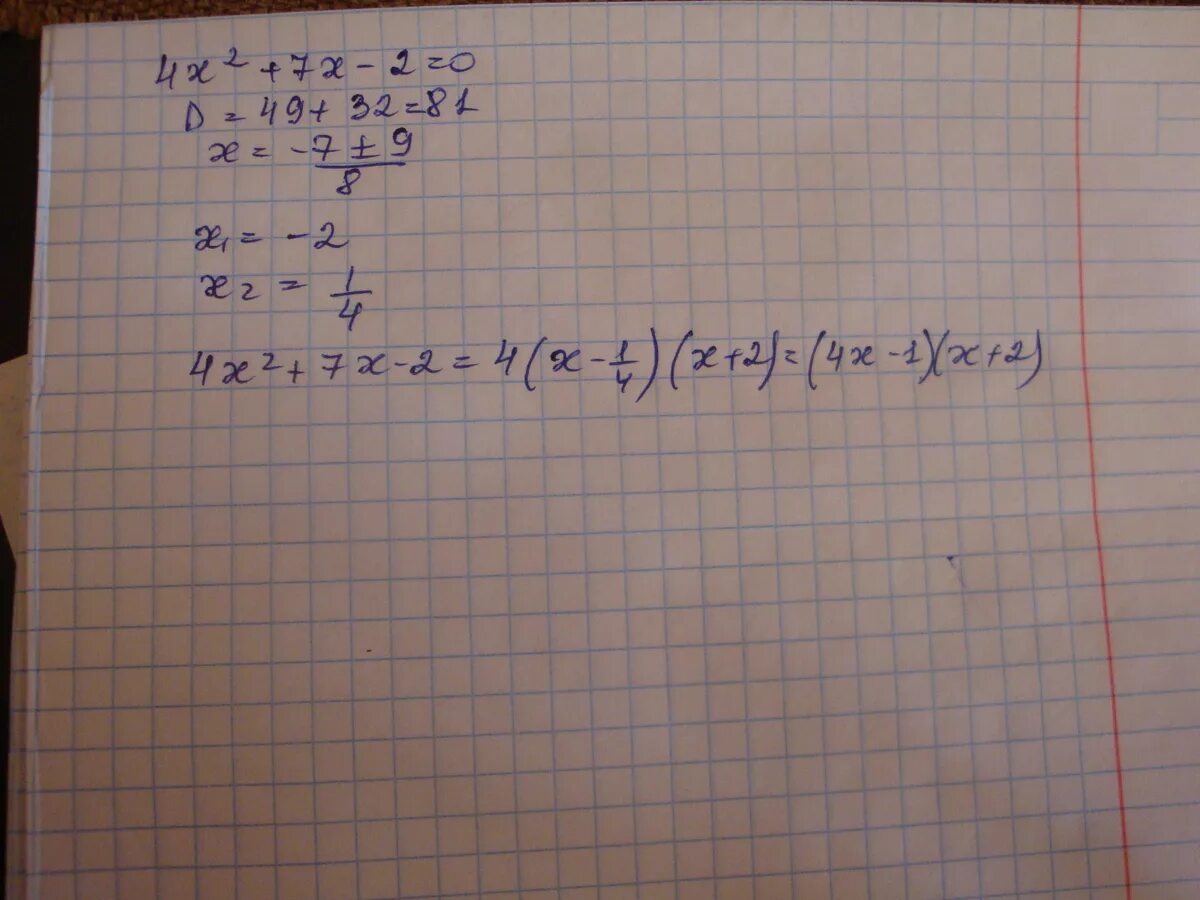 4x² + 7x - 2 = 0
D = 49 + 32 = 81
x = -7 ± 9 / 8
x₁ = -2
x₂ = 1/4
4x² + 7x - 2 = 4(x - 1/4)(x + 2) = (4x - 1)(x + 2)